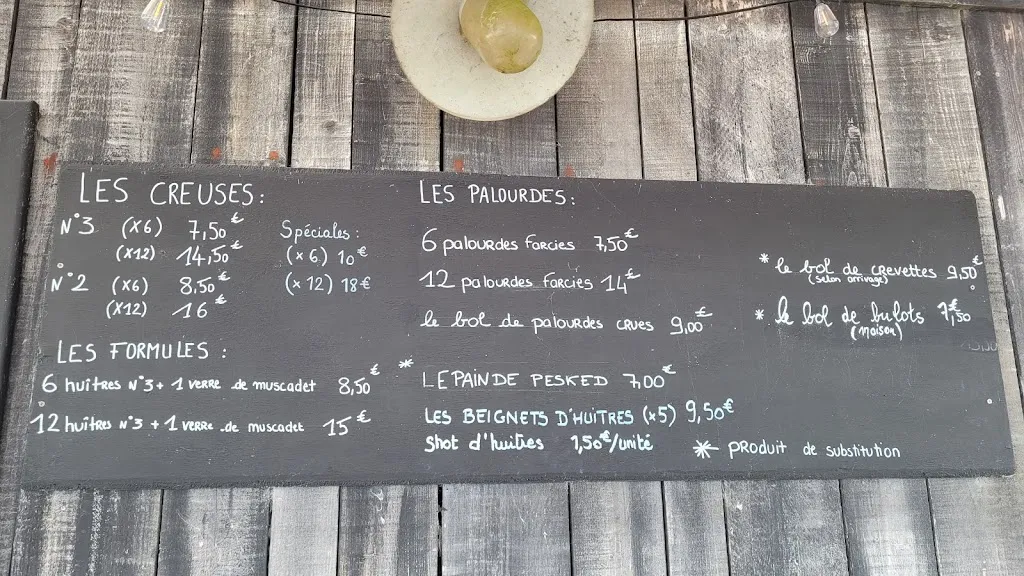 LES CREUSES :
N°3 (x6) 7,50€
(x12) 14,50€
N°2 (x6) 8,50€
(x12) 16€
Spéciales :
(x6) 10€
(x12) 18€
LES FORMULES :
6 huîtres N°3 + 1 verre de muscadet 8,50€
12 huîtres N°3 + 1 verre de muscadet 15€
LES PALOURDES :
6 palourdes farcies 7,50€
12 palourdes farcies 14€
le bol de palourdes crues 9,00€
* LE PAIN DE PESKED 7,00€
LES BEIGNETS D'HUÎTRES (x5) 9,50€
Shot d'huîtres 1,50€/unité
* le bol de crevettes 9,50€
(selon arrivage)
* le bol de bulots 7,50€
(maison)
* PRODUIT de substitution